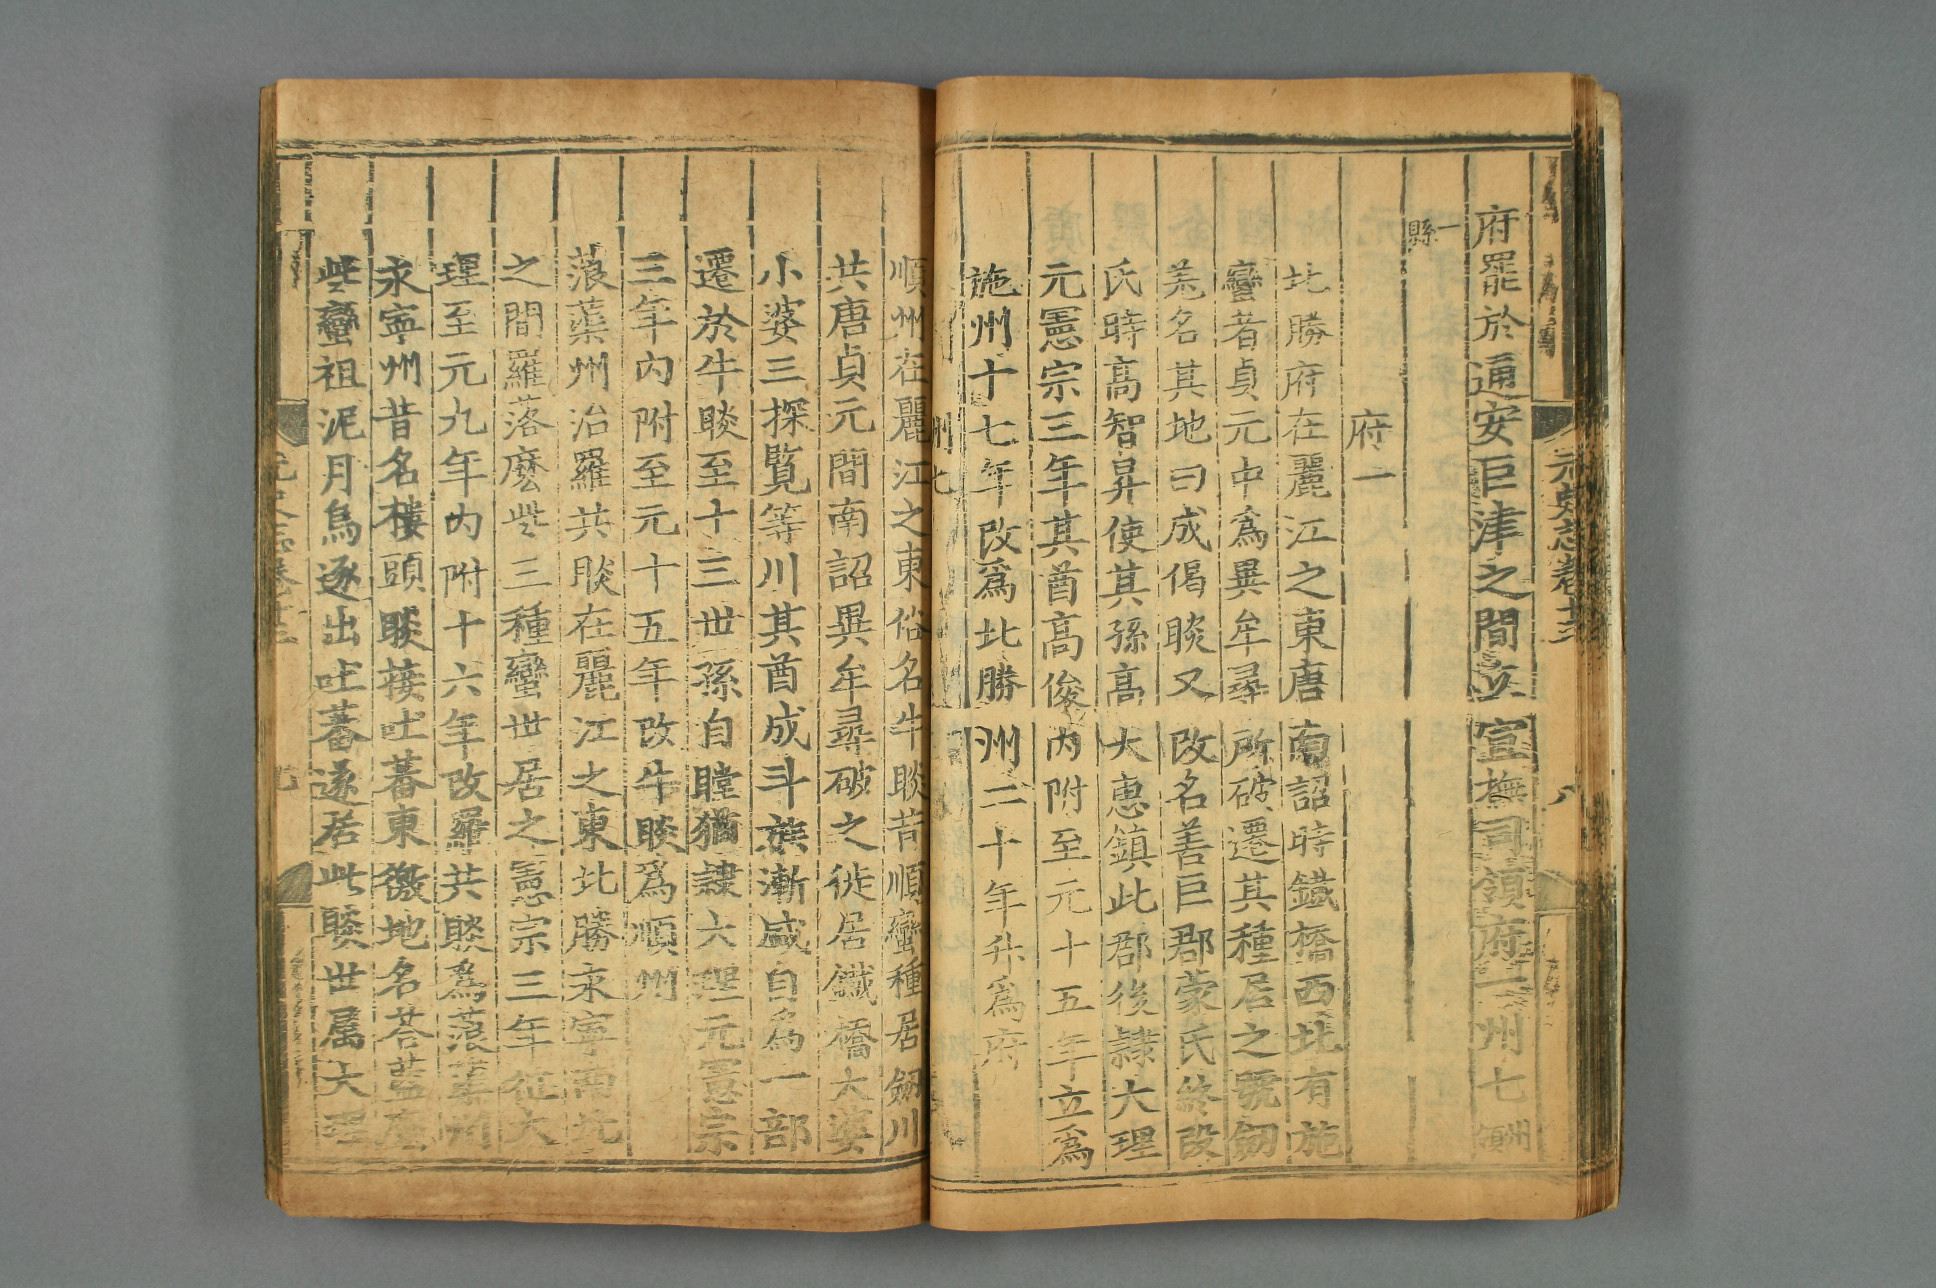 府罷於通安巨津之間立宣撫司領府一州七州領
一縣
府一
北勝府在麗江之東唐南詔時鐵橋西北有施
蠻者貞元中爲異牟尋所破遷其種居之號劒
羌名其地曰成偈睒又改名善巨郡蒙氏終段
氏時高智昇使其孫高大惠鎮此郡後隷大理
元憲宗三年其酋高俊內附至元十五年立爲
施州十七年改爲北勝州二十年升爲府
州七
順州在麗江之東俗名牛睒昔順蠻種居劒川
共唐貞元間南詔異牟尋破之徙居鐵橋大婆
小婆三探覽等川其酋成斗族漸盛自爲一部
遷於牛睒至十三世孫自瞠猶隷大理元憲宗
三年內附至元十五年改牛睒爲順州
蒗蕖州治羅共睒在麗江之東北勝永寧南北
之間羅落麽些三種蠻世居之憲宗三年征大
理至元九年內附十六年改羅共睒爲蒗蕖州
永寧州昔名樓頭睒接吐蕃東徼地名荅藍麽
些蠻祖泥月烏逐出吐蕃遂居此睒世属大理
元史志卷十三
八